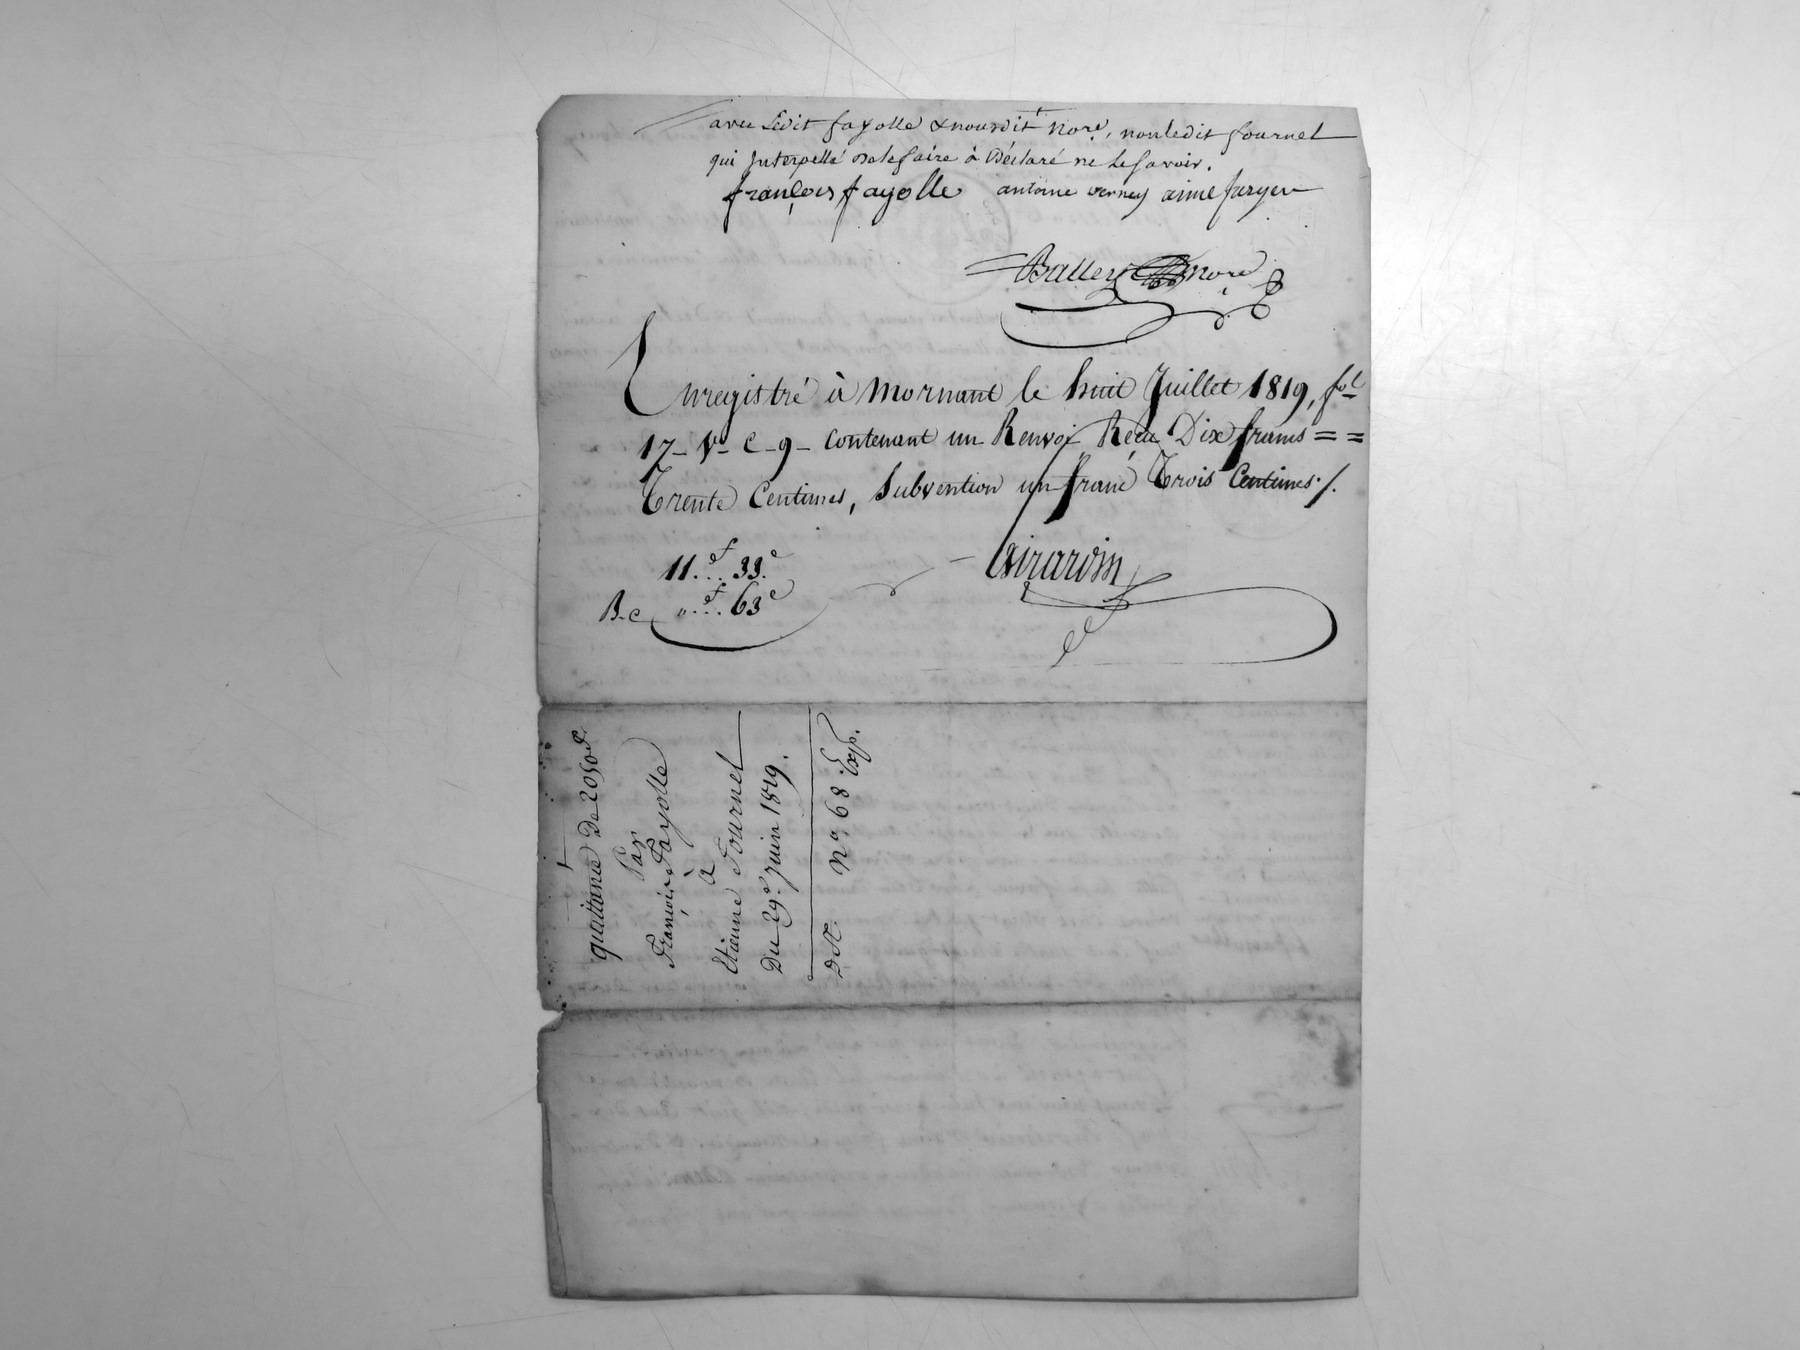 avec Ledit fayolle & nousdit Nore, non ledit fournel
qui Interpellé de le faire à Déclaré ne le savoir.
françois fayolle antoine verney aimé
Balley nore
Enregistré à Mornant le huit Juillet 1819, fol
17 - V - C - 9 - contenant un Renvoi Reçu Dix francs = =
Trente Centimes, Subvention un franc Trois Centimes /.
11.f.. 33.c
Girardin
B.c ".f.. 63c
quittance De 2050f
Par
François Fayolle
à
Etienne Fournel
Du 29e juin 1819.
No. 68 Exp.